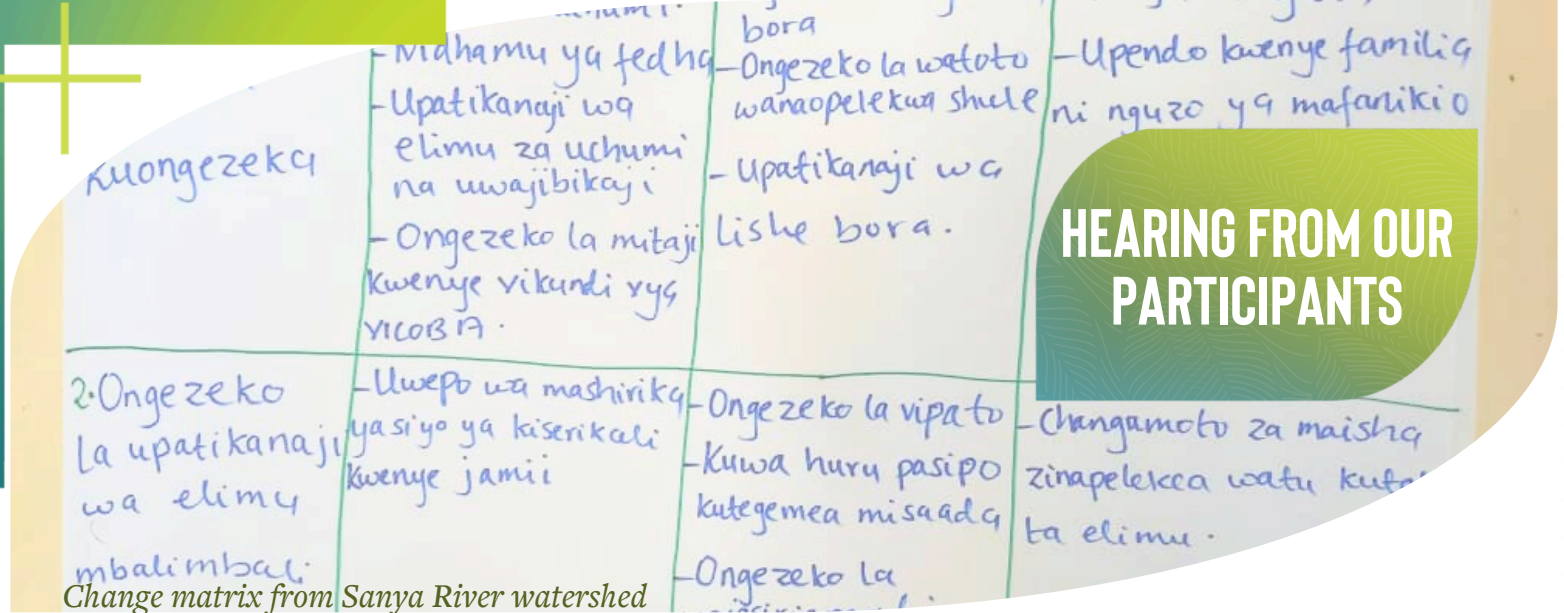 - Mdhamu ya fedha
- Upatikanaji wa
elimu za uchumi
na uwajibikaji
- Ongezeko la mitaji
kwenye vikundi vya
VICOBA.
kuongezeka
bora
- Ongezeko la watoto
wanaopelekwa shule
- Upatikanaji wa
lishe bora.
- Upendo kwenye familia
ni nguzo ya mafanikio
HEARING FROM OUR
PARTICIPANTS
2. Ongezeko
la upatikanaji
wa elimu
mbalimbali
- Uwepo wa mashirika
yasiyo ya kiserikali
kwenye jamii
- Ongezeko la vipato
- Kuwa huru pasipo
kutegemea misaada
- Ongezeko la
- Changamoto za maisha
zinapelekea watu
ta elimu.
Change matrix from Sanya River watershed